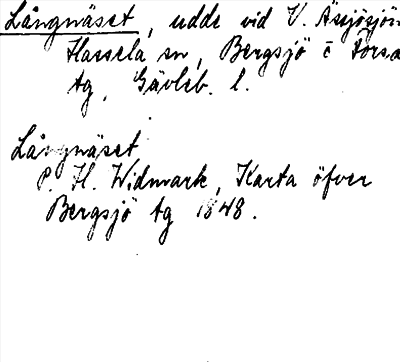 Långnäset, udde vid V. Åsjösjön
Hassela sn, Bergsjö o Forsa
tg, Gävleb. l.
Långnäset
P. H. Widmark, Karta öfver
Bergsjö tg 1848.